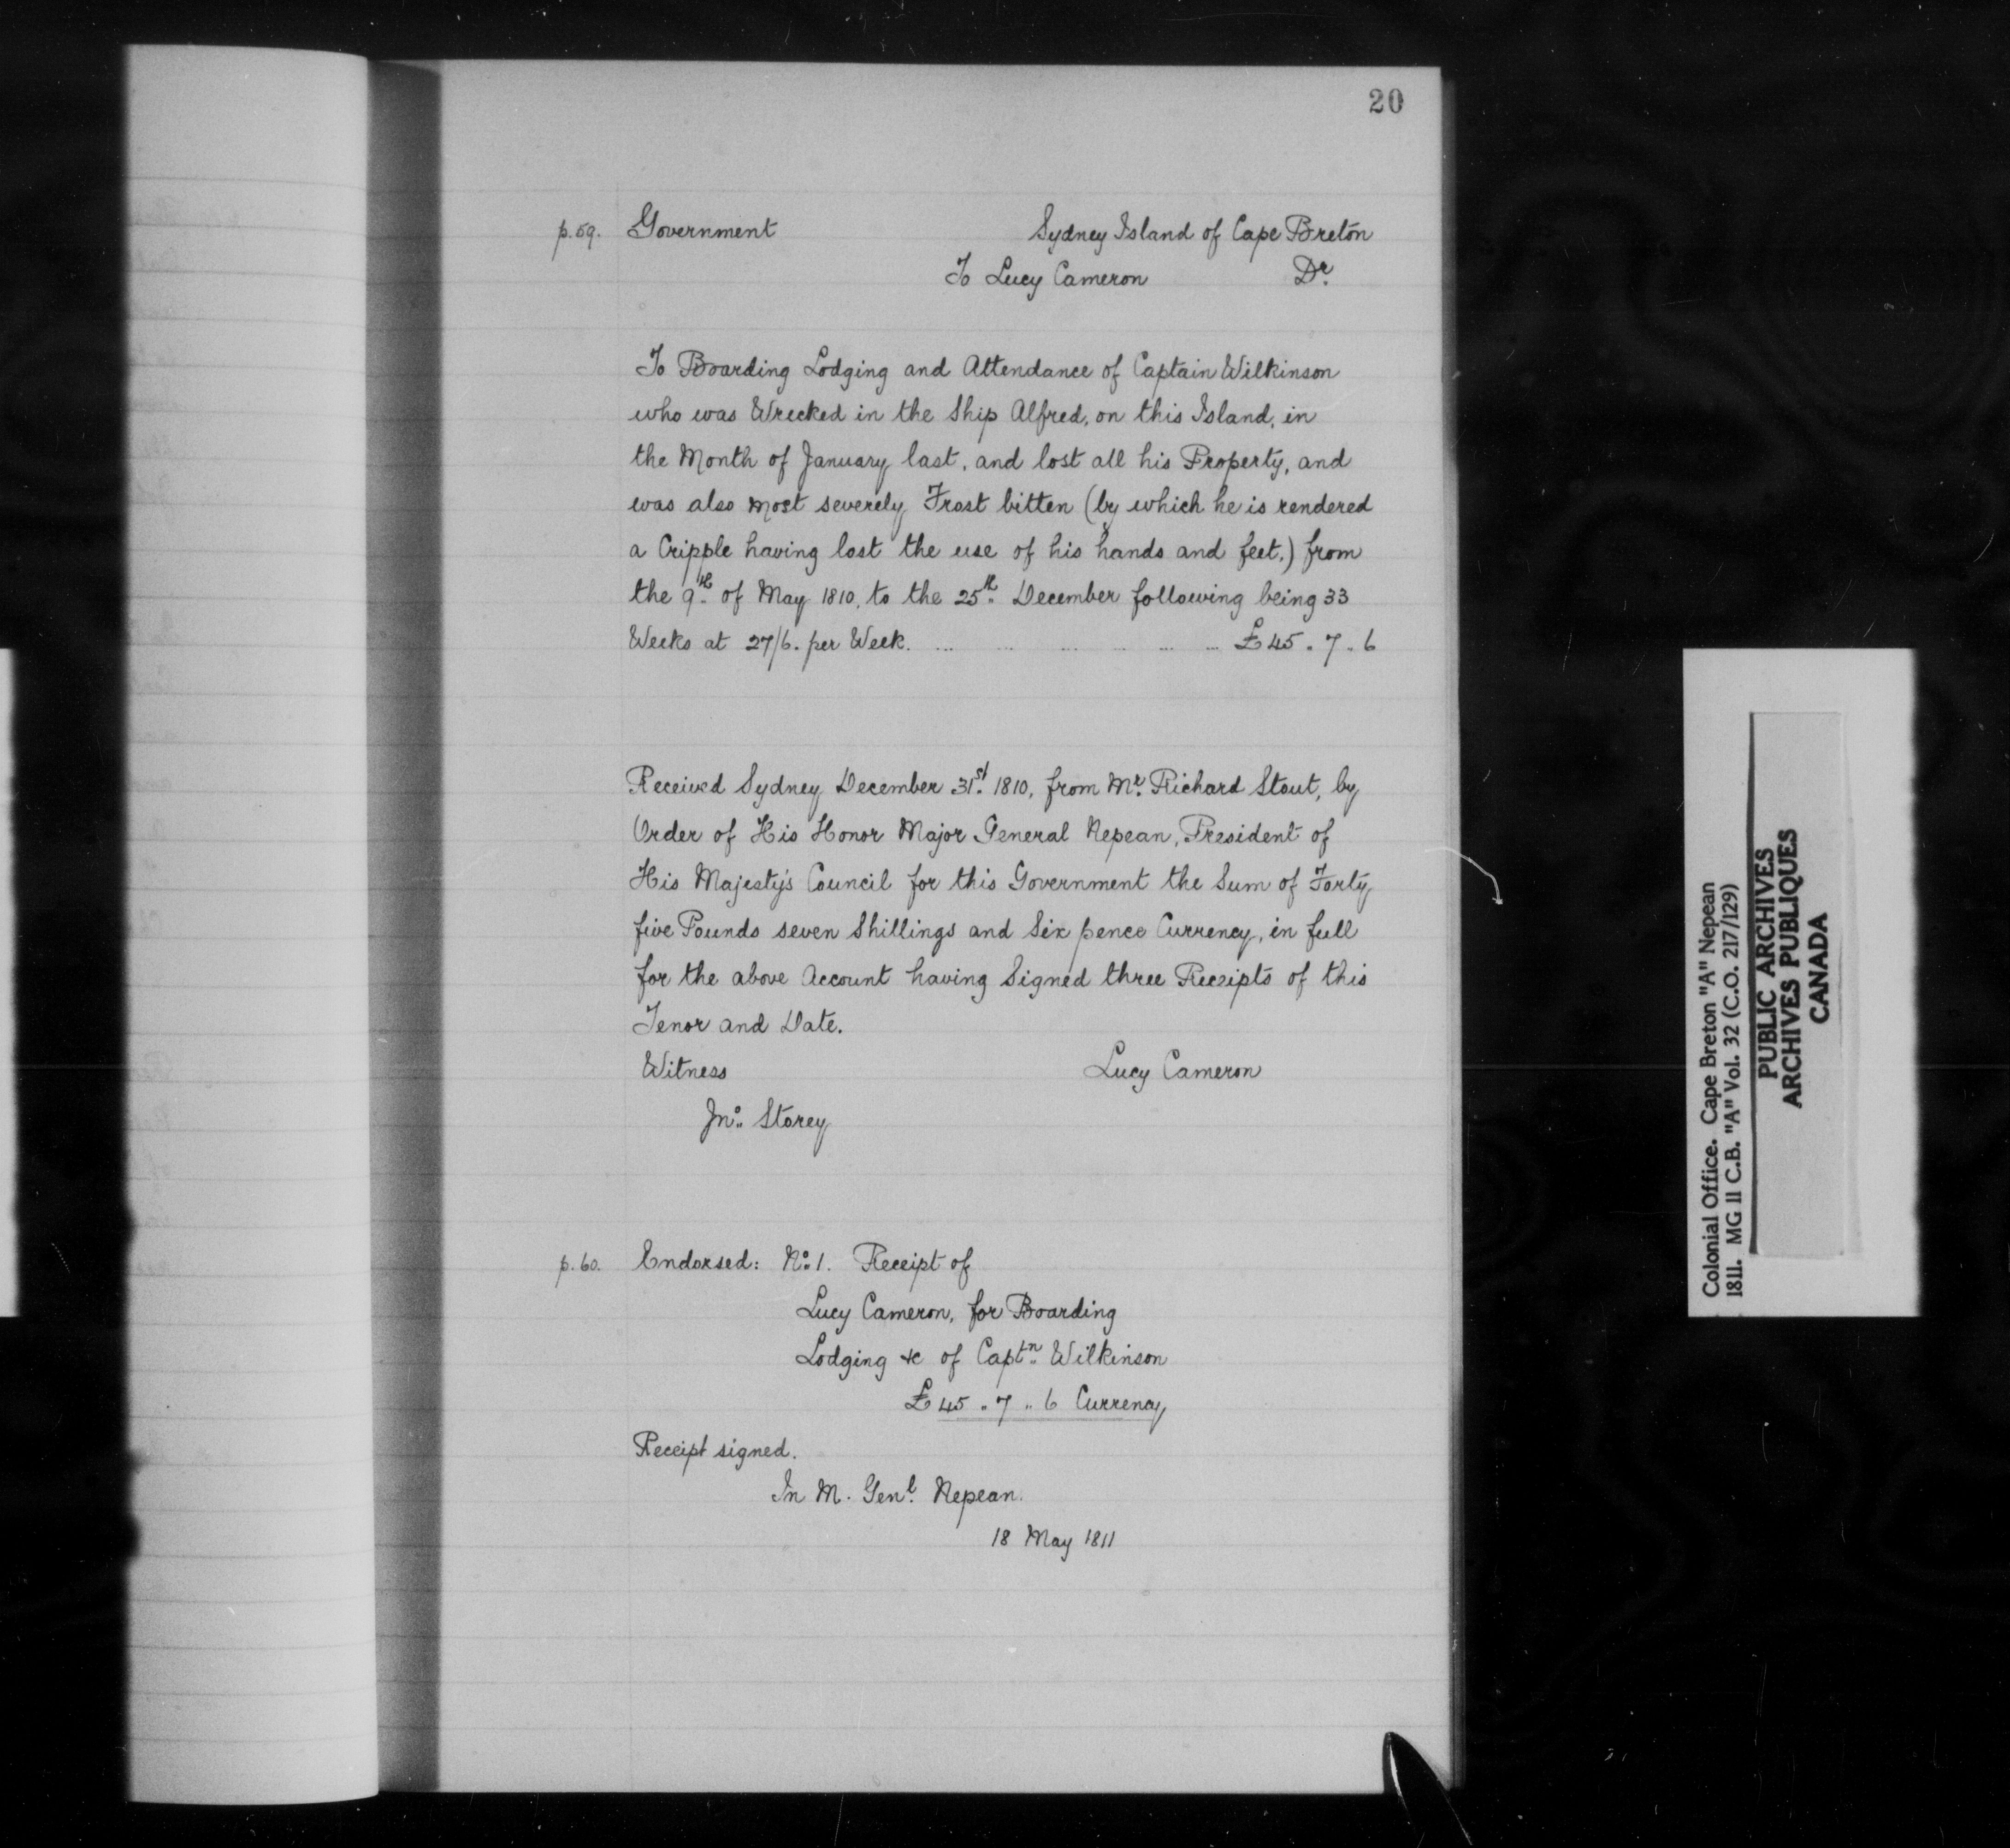 20
p.59. Government Sydney Island of Cape Breton
To Lucy Cameron Dr.
To Boarding Lodging and Attendance of Captain Wilkinson
who was Wrecked in the Ship Alfred, on this Island, in
the Month of January last, and lost all his Property, and
was also most severely Frost bitten (by which he is rendered
a Cripple having lost the use of his hands and feet.) from
the 9th of May 1810, to the 25th December following being 33
Weeks at 27/6. per Week. ... ... ... ... ... ... £45.7.6
Received Sydney December 31st 1810, from Mr. Richard Stout, by
Order of His Honor Major General Nepean, President of
His Majesty's Council for this Government the Sum of Forty
five Pounds seven Shillings and Six pence Currency, in full
for the above Account having Signed three Receipts of this
Tenor and Date.
Witness Lucy Cameron
Jno. Storey
p.60. Endorsed: No. 1. Receipt of
Lucy Cameron, for Boarding
Lodging &c of Captn. Wilkinson
£45.7.6 Currency
Receipt signed.
In M. Genl. Nepean.
18 May 1811
Colonial Office. Cape Breton "A" Nepean
1811. MG 11 C.B. "A" Vol. 32 (C.O. 217/129)
PUBLIC ARCHIVES
ARCHIVES PUBLIQUES
CANADA